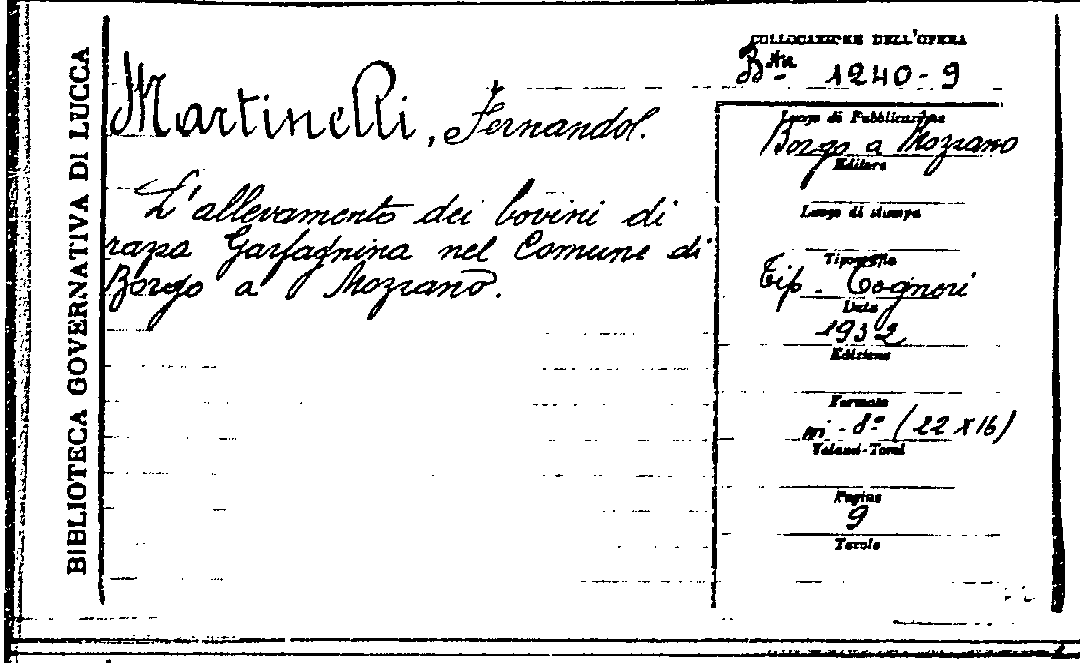 BIBLIOTECA GOVERNATIVA DI LUCCA
Martinelli, Fernando.
L'allevamento dei bovini di
razza Garfagnina nel Comune di
Borgo a Mozzano.
COLLOCAZIONE DELL'OPERA
Bta 1240-9
Luogo di Pubblicazione
Borgo a Mozzano
Editore
Luogo di stampa
Tipografia
Tip. Cagnoni
Data
1932
Edizione
Formato
in-8º (22 x 16)
Volumi-Tomi
Pagine
9
Tavole